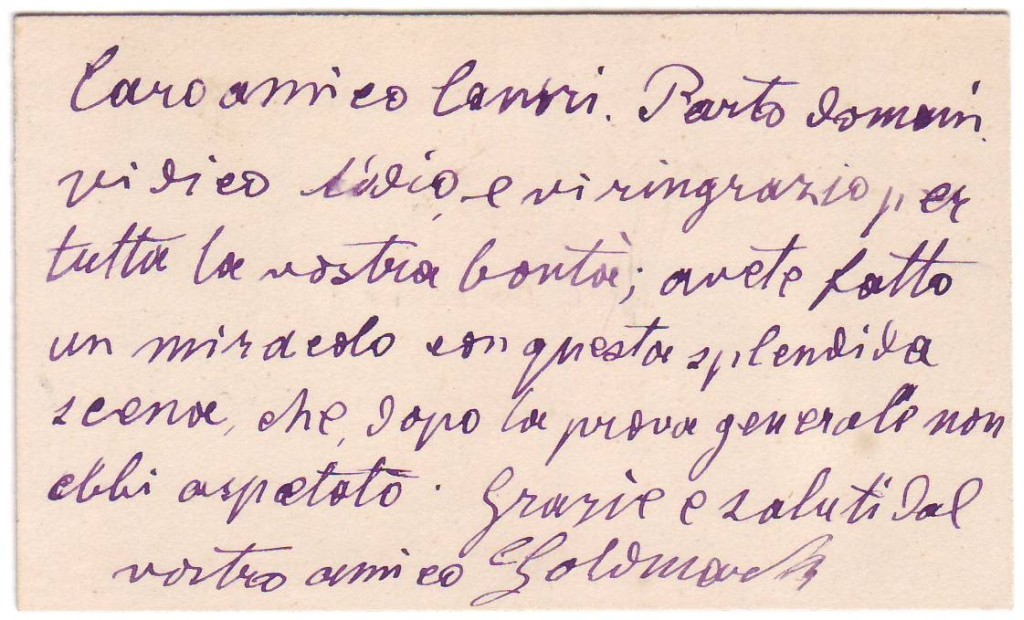 Caro amico Canori. Parto domani.
vi dico addio, e vi ringrazio per
tutta la vostra bontà; avete fatto
un miracolo con questa splendida
scena, che, dopo la prova generale non
ebbi aspetato. Grazie e saluti dal
vostro amico CGoldmark